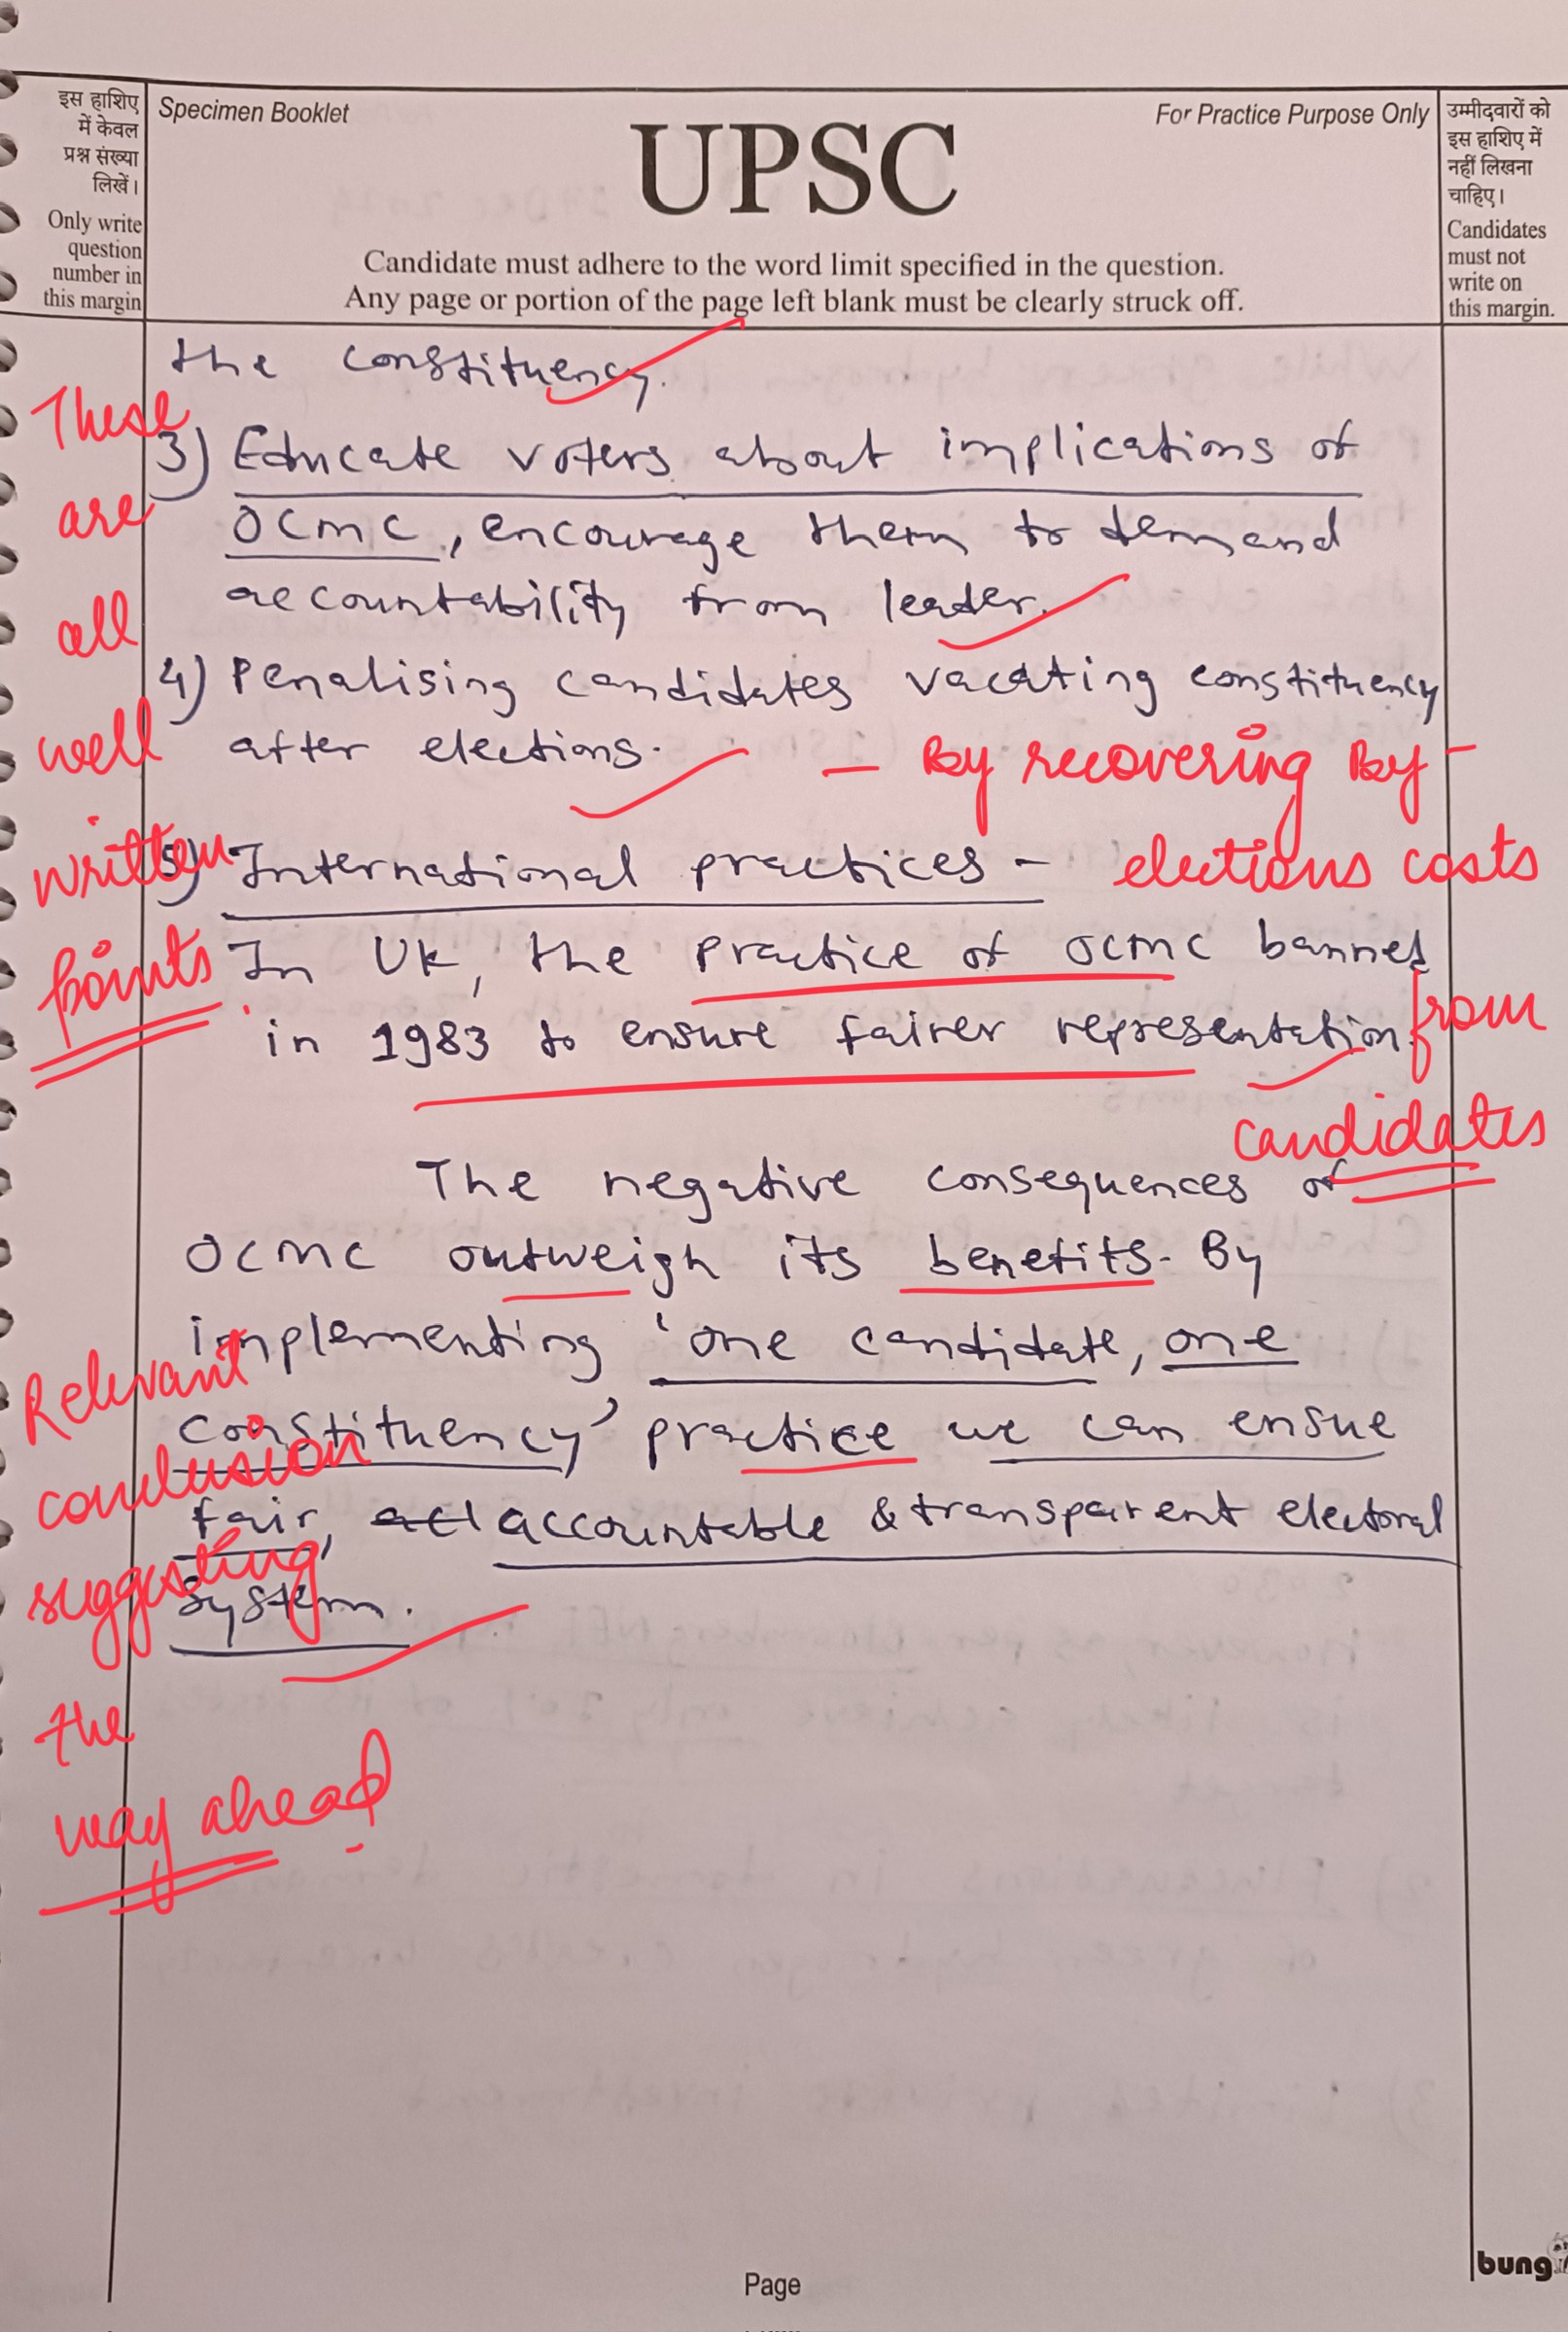 इस हाशिए
में केवल
प्रश्न संख्या
लिखें।
Only write
question
number in
this margin
Specimen Booklet
For Practice Purpose Only
UPSC
Candidate must adhere to the word limit specified in the question.
Any page or portion of the page left blank must be clearly struck off.
उम्मीदवारों को
इस हाशिए में
नहीं लिखना
चाहिए।
Candidates
must not
write on
this margin.
the constituency.
3) Educate voters about implications of
OCMC, encourage them to demand
accountability from leader.
4) Penalising candidates vacating constituency
after elections.
- By recovering By-
elections costs
from
candidates
5) International practices -
In UK, the practice of OCMC banned
in 1983 to ensure fairer representation.
These
are
all
well
written
points
The negative consequences of
OCMC outweigh its benefits. By
implementing 'one candidate, one
constituency' practice we can ensue
fair, accountable & transparent electoral
system.
Relevant
conclusion
suggesting
the
way ahead
Page
bung